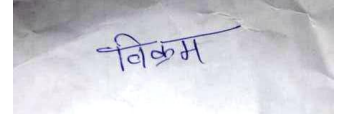 विक्रम